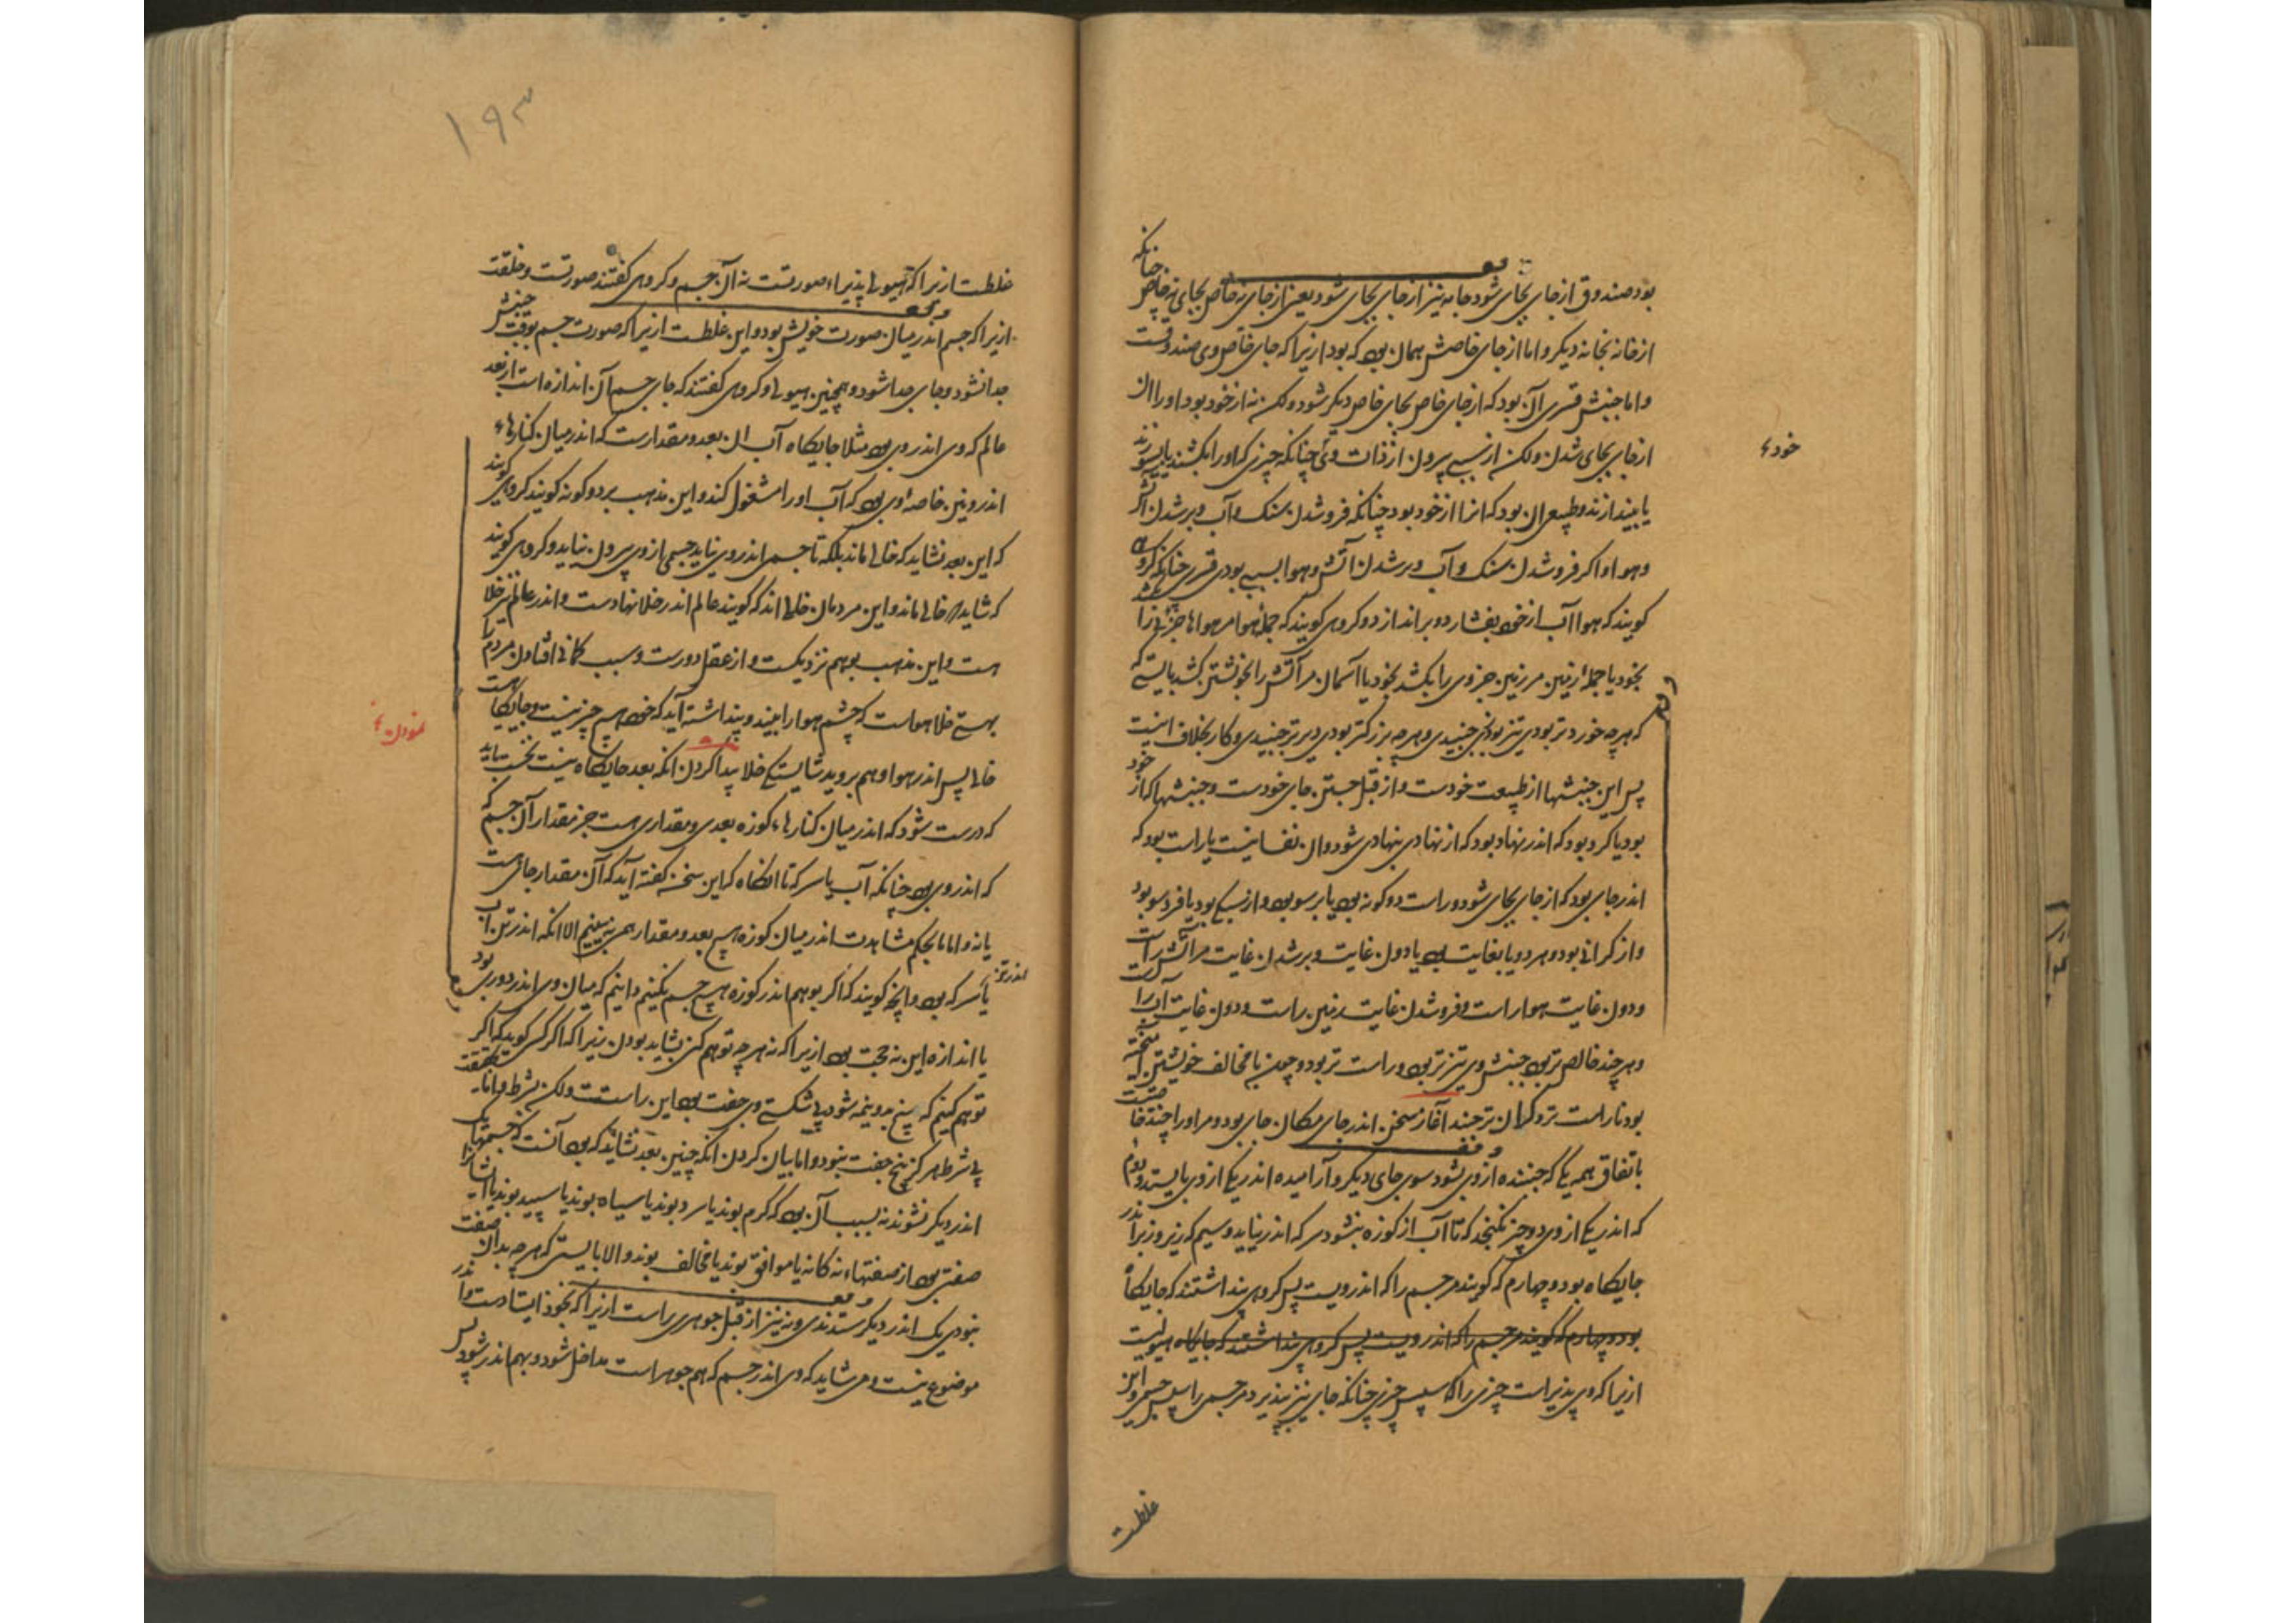 بود صندوق از جای بجای شود جامه نیز از جای بجای شود یعنی از جای نه خاص بجای نه خاص چنانکه
از خانه بخانه دیگر و اما از جای خاصش همان بود که بود ازیرا که جای خاص وی صندوقست
و اما جنبش قسری آن بود که از جای خاص بجای خاص دیگر شود ولکن نه از خود بود او را آن
از جای بجای شدن ولکن از سببی بیرون از ذات وی چنانکه چیزی که او را بکشند یا بسپوزند
خودء
یا بیندازند و طبیعی آن بود که آنرا از خود بود چنانکه فروشدن سنگ و آب و برشدن آتش
و هوا و اگر فروشدن سنگ و آب و برشدن آتش و هوا بسببی بودی قسری چنانکه گروهی
گویند که هوا آب از خود بفشارد و براندازد و گروهی گویند که جمله هوا مر هواها جزئی را کشد
بخود یا جمله زمین مر زمین جزوی را بکشد بخود یا آسمان مر آتش را بخویشتن کشد بایستی که
که هرچه خوردتر بودی تیزتر جنبیدی و هرچه بزرگتر بودی دیرتر جنبیدی و کار بخلاف اینست
پس این جنبشها از طبیعت خودست و از قبل جستن جای خودست و جنبشها که از خود
بود یا گرد بود که اندر نهاد بود که از نهادی بنهادی شود و آن نفسانیست یا راست بود که
اندر جای بود که از جای بجای شود و راست دو گونه بود یا برسو بود و از سبکی بود یا فروسو بود
و از گرانی بود و هر دو یا بغایت بود یا دون غایت و برشدن غایت مر آتش راست
و دون غایت هوا راست و فروشدن غایت زمین راست و دون غایت آب را
و هرچند خالص تر بود جنبش وی تیزتر بود و راست تر بود و چون با مخالف خویشتن آمیخته
بود ناراست تر و گران تر جنبد آغاز سخن اندر جای مکان جای بود و مر او را چند خاصیتست
باتفاق همه یکی که جنبنده از وی بشود سوی جای دیگر و آرامیده اندر یکی از وی بایستد و دوم
که اندر یکی از وی دو چیز نگنجد که تا آب از کوزه بنشود سرکه اندر نیاید و سیم که زیر و زبر اندر
جایگاه بود و چهارم که گویند مر جسم را که اندر ویست پس گروهی پنداشتند که جایگاه
بود و چهارم که گویند مر جسم را که اندر ویست پس گروهی پنداشتند که جایگاه هیولیست
ازیرا که وی پذیراست چیزی را که سپس چیزی چنانکه جای نیز پذیرد مر جسمی را سپس جسمی و این
غلطست
۱۹۳
غلطست ازیرا که هیولی پذیراء صورتست نه آن جسم و گروهی گفتند صورتست و خلقت
ازیرا که جسم اندر میان صورت خویش بود و این غلطست ازیرا که صورت جسم بوقت جنبش
جدا نشود و جای جدا شود و همچنین هیولی و گروهی گفتند که جای جسم آن اندازه است از بعد
عالم که وی اندر وی بود مثلا جایگاه آب آن بعد و مقدارست که اندر میان کنارهاء
اندرونین خاصه وی بود که آب او را مشغول کند و این مذهب بر دو گونه گویند گروهی گویند
که این بعد نشاید که خالی ماند بلکه تا جسمی اندر وی نیاید جسمی از وی بیرون نیاید و گروهی گویند
که شاید که خالی ماند و این مردمان خلااند که گویند عالم اندر خلا نهادست و اندر عالم نیز خلا
هست و این مذهب بوهم نزدیکست و از عقل دورست و سبب گمانی افتادن مردم را
بهستی خلا هواست که چشم هوا را نبیند و پنداشته آید که خود هیچ چیز نیست و جایگاهست
نمودنء
خالی پس اندر هوا و هم بروید شایستگی خلا پیدا کردن آنکه بعد جایگاه نیست نخست باید
که درست شود که اندر میان کنارهاء کوزه بعدی و مقداری هست جز مقدار آن جسم که
که اندر وی بود چنانکه آب یا سرکه تا آنگاه که این سخن گفته آید که آن مقدار جای هست
یا نه و اما ما بحکم مشاهدت اندر میان کوزه هیچ بعد و مقدار همی نبینیم الا آنکه اندر تن آب
اندر تن
یا سرکه بود و آنچه گویند که اگر بوهم اندر کوزه هیچ جسم نکنیم دانیم که میان وی اندر دوری بود
یا اندازه این نه حجت بود ازیرا که نه هرچه توهم کنی بشاید بودن زیرا که اگر کسی گوید که اگر
توهم کنیم که پنج بدو نیمه شود بی شکستی وی جفت بود این راستست ولکن بشرط و اما بحقیقت
بی شرط هرگز پنج جفت نبود و اما بیان کردن آنکه چنین بعد نشاید که بود آنست که جسمها یک
اندر دیگر نشوند نه بسبب آن بود که گرم بوند یا سرد بوند یا سیاه بوند یا سپید بوند یا آشکارا
صفتی بود از صفتهاء نه کانه یا موافق بوند یا مخالف بوند والا بایستی که هرچه بدان صفت
نبودی یک اندر دیگر شدندی و نه نیز از قبل جوهری راست ازیرا که بخود ایستادست و اندر
موضوع نیست و می شاید که وی اندر جسم که هم جوهر است مداخل شود و بهم اندر شود پس